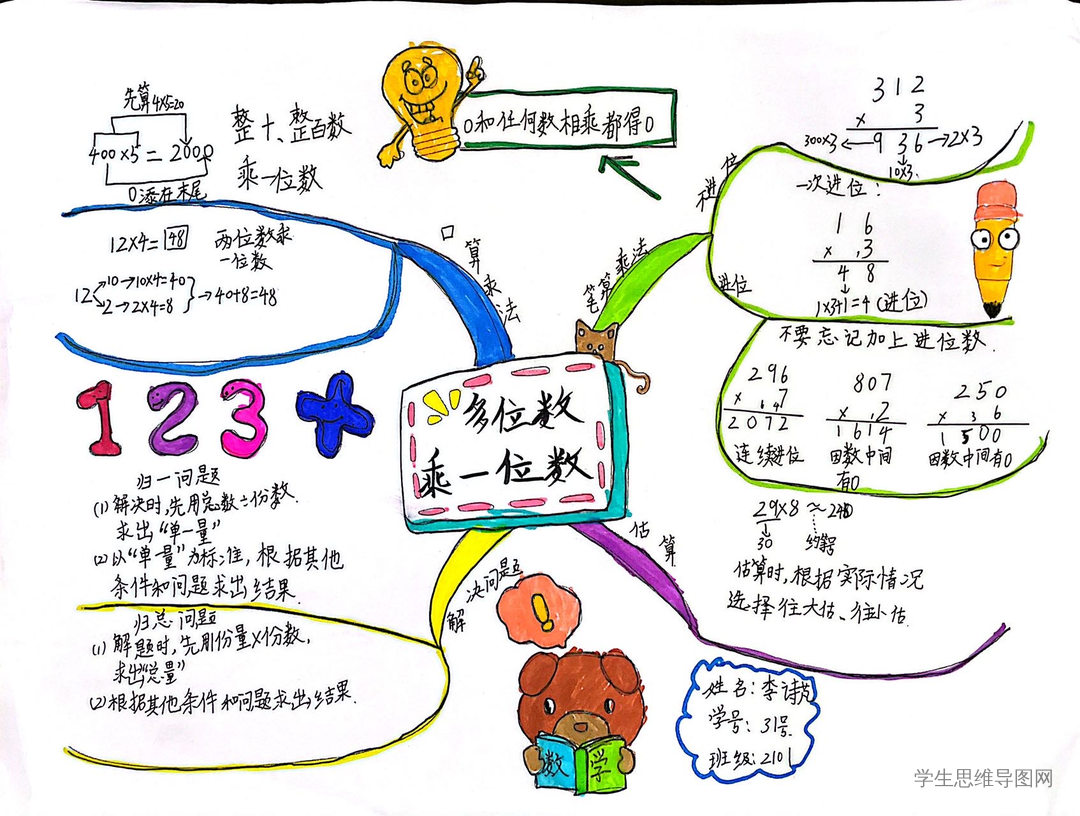 多位数
乘一位数
口算乘法
先算4×5=20
400×5=2000
0添在末尾
整十、整百数
乘一位数
12×4=48
两位数乘
一位数
12
10→10×4=40
2→2×4=8
→40+8=48
0和任何数相乘都得0
笔算乘法
不进位
312
× 3
936
300×3
10×3
2×3
进位
一次进位:
16
× 3
48
1×3+1=4(进位)
不要忘记加上进位数.
296
× 7
2072
连续进位
807
× 2
1614
因数中间
有0
250
× 36
1500
因数中间有0
估算
29×8≈240
30
估算时,根据实际情况
选择往大估、往小估.
解决问题
归一问题
(1)解决时,先用总数÷份数.
求出“单一量”
(2)以“单量”为标准,根据其他
条件和问题求出结果.
归总问题
(1)解题时,先用份量×份数,
求出“总量”
(2)根据其他条件和问题求出结果.
123+
!
数学
姓名:李诗
学号:31号
班级:2101
学生思维导图网